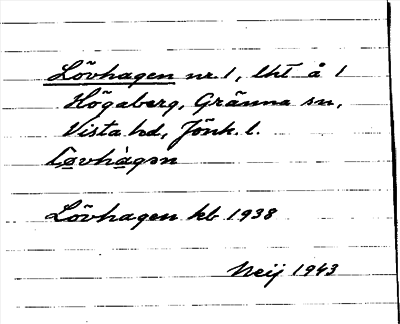 Lövhagen nr. 1, lht å 1
Högaberg, Gränna sn,
Vista hd, Jönk. l.
Lövhàgən
Lövhagen kb 1938
Neij 1943